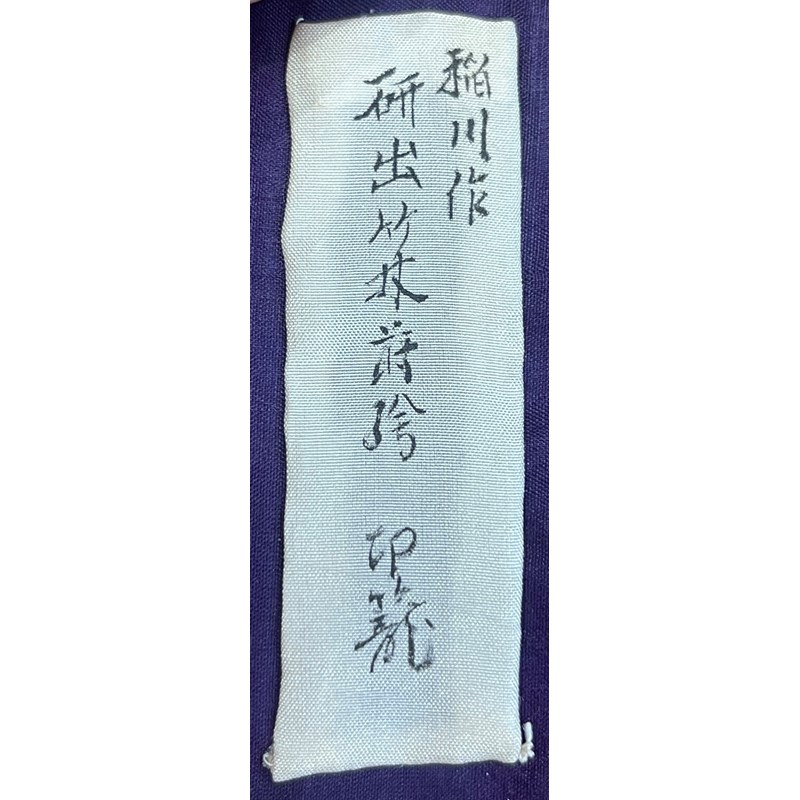 稲川作
研出竹林蒔絵 印籠